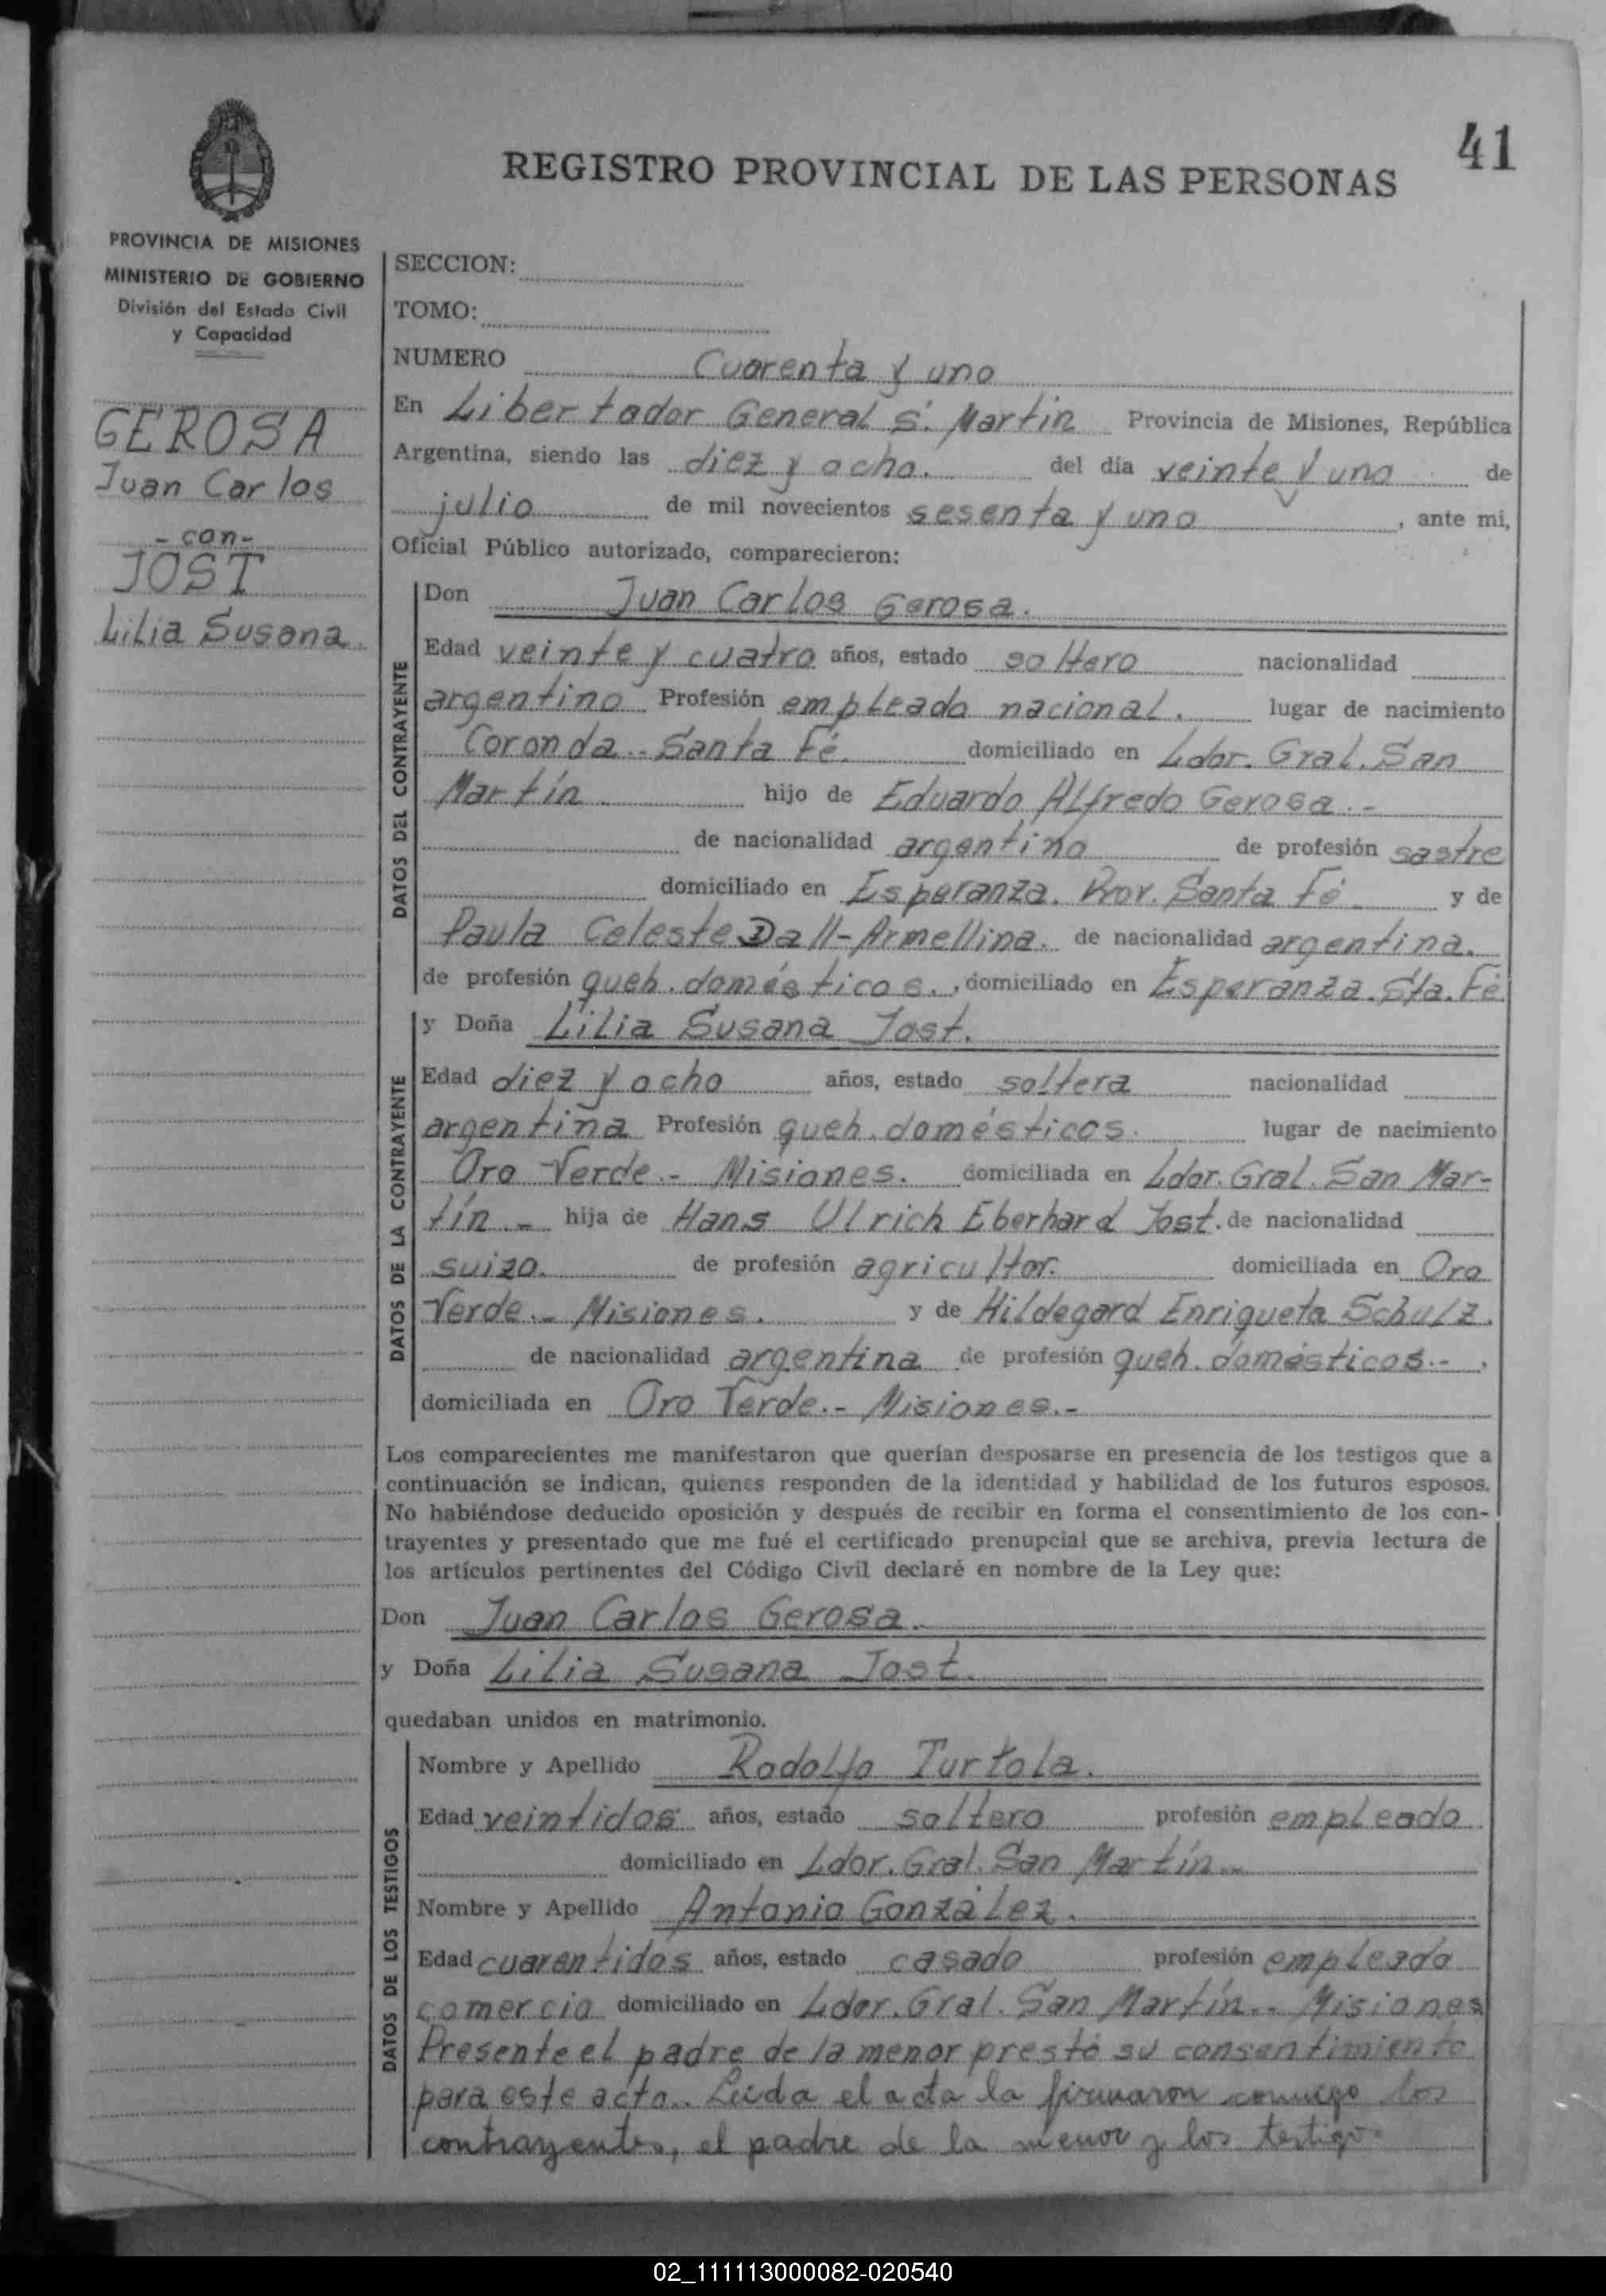 41
REGISTRO PROVINCIAL DE LAS PERSONAS
PROVINCIA DE MISIONES
MINISTERIO DE GOBIERNO
División del Estado Civil
y Capacidad
GEROSA
Juan Carlos
- con -
JOST
Lilia Susana.
SECCION:
TOMO:
NUMERO Cuarenta y uno
En Libertador General S. Martín Provincia de Misiones, República
Argentina, siendo las diez y ocho. del día veinte y uno de
julio de mil novecientos sesenta y uno, ante mi,
Oficial Público autorizado, comparecieron:
DATOS DEL CONTRAYENTE
Don Juan Carlos Gerosa.
Edad veinte y cuatro años, estado soltero nacionalidad
argentino Profesión empleado nacional. lugar de nacimiento
Coronda.- Santa Fé. domiciliado en Ldor. Gral. San
Martín. hijo de Eduardo Alfredo Gerosa.-
de nacionalidad argentino de profesión sastre
domiciliado en Esperanza. Prov. Santa Fé y de
Paula Celeste Dall-Armellina. de nacionalidad argentina.
de profesión queh. domésticos., domiciliado en Esperanza. Sta. Fé
DATOS DE LA CONTRAYENTE
y Doña Lilia Susana Jost.
Edad diez y ocho años, estado soltera nacionalidad
argentina Profesión queh. domésticos. lugar de nacimiento
Oro Verde.- Misiones. domiciliada en Ldor. Gral. San Mar-
tín.- hija de Hans Ulrich Eberhard Jost. de nacionalidad
suizo. de profesión agricultor. domiciliada en Oro
Verde.- Misiones. y de Hildegard Enriqueta Schulz.
de nacionalidad argentina de profesión queh. domésticos.-,
domiciliada en Oro Verde.- Misiones.-
Los comparecientes me manifestaron que querían desposarse en presencia de los testigos que a
continuación se indican, quienes responden de la identidad y habilidad de los futuros esposos.
No habiéndose deducido oposición y después de recibir en forma el consentimiento de los con-
trayentes y presentado que me fué el certificado prenupcial que se archiva, previa lectura de
los artículos pertinentes del Código Civil declaré en nombre de la Ley que:
Don Juan Carlos Gerosa.
y Doña Lilia Susana Jost.
quedaban unidos en matrimonio.
DATOS DE LOS TESTIGOS
Nombre y Apellido Rodolfo Turtola.
Edad veintidos años, estado soltero profesión empleado
domiciliado en Ldor. Gral. San Martín.-
Nombre y Apellido Antonio González.
Edad cuarentidos años, estado casado profesión empleado
comercio domiciliado en Ldor. Gral. San Martín.- Misiones
Presente el padre de la menor prestó su consentimiento
para este acto.. Leída el acta la firmaron conmigo los
contrayentes, el padre de la menor y los testigos
02_111113000082-020540